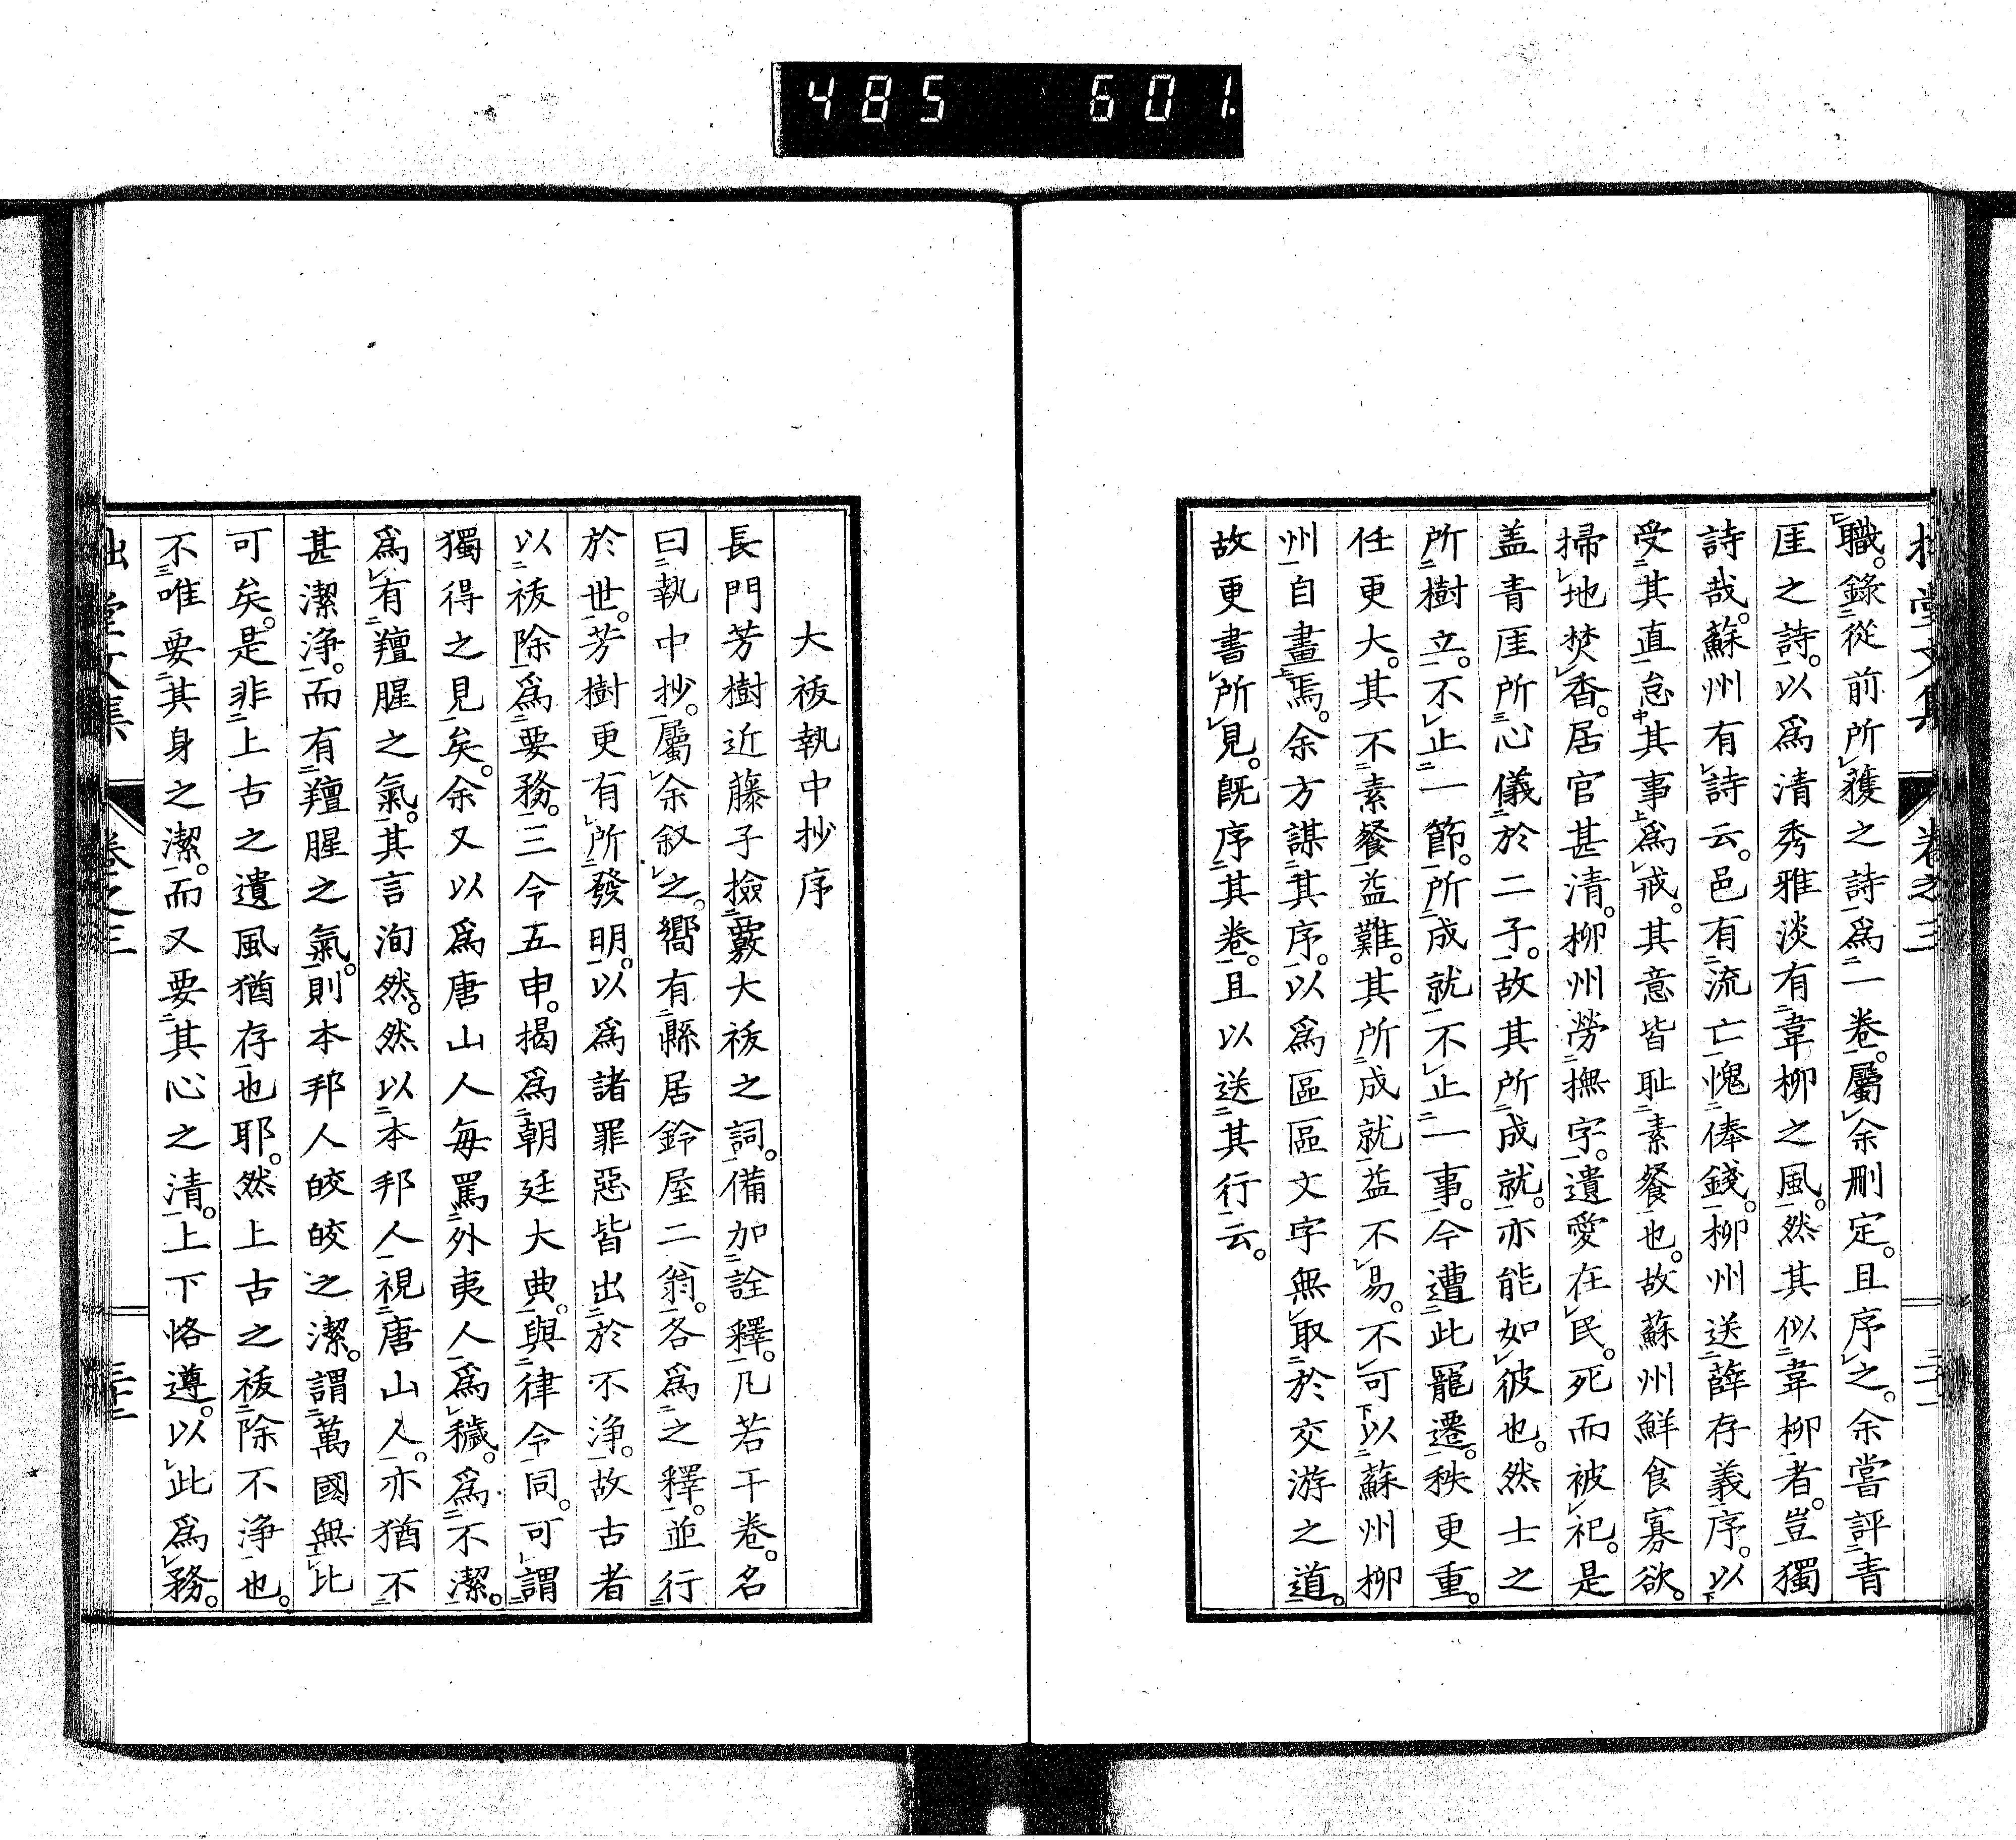 485 601.
職。錄從前所獲之詩爲一卷。屬余刪定。且序之。余嘗評青
厓之詩。以爲清秀雅淡有韋柳之風。然其似韋柳者。豈獨
詩哉。蘇州有詩云。邑有流亡愧俸錢。柳州送薛存義序。以
受其直怠其事爲戒。其意皆耻素餐也。故蘇州鮮食寡欲。
掃地焚香。居官甚清。柳州勞撫字。遺愛在民。死而被祀。是
盖青厓所心儀於二子。故其所成就。亦能如彼也。然士之
所樹立。不止一節。所成就不止一事。今遭此寵遷。秩更重。
任更大。其不素餐益難。其所成就益不易。不可以蘇州柳
州自畫焉。余方謀其序。以爲區區文字無取於交游之道。
故更書所見。既序其卷。且以送其行云。
大祓執中抄序
長門芳樹近藤子撿覈大祓之詞。備加詮釋。凡若干卷。名
曰執中抄。屬余叙之。嚮有縣居鈴屋二翁。各爲之釋。並行
於世。芳樹更有所發明。以爲諸罪惡皆出於不浄。故古者
以祓除爲要務。三令五申。揭爲朝廷大典。與律令同。可謂
獨得之見矣。余又以爲唐山人每罵外夷人爲穢。爲不潔。
爲有羶腥之氣。其言洵然。然以本邦人視唐山人。亦猶不
甚潔浄。而有羶腥之氣。則本邦人皎皎之潔。謂萬國無比
可矣。是非上古之遺風猶存也耶。然上古之祓除不浄也。
不唯要其身之潔。而又要其心之清。上下恪遵。以此爲務。
卷之三